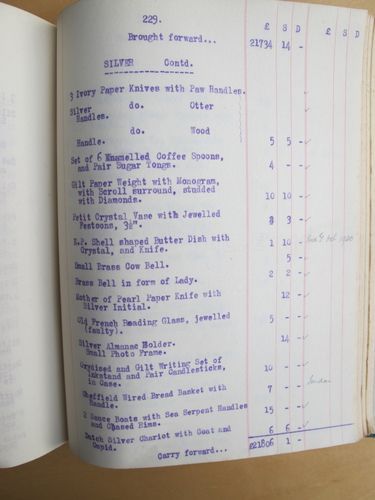 229.
£ S D £ S D
Brought forward... 21734 14 -
SILVER Contd.
3 Ivory Paper Knives with Paw Handles.
Silver do. Otter
Handles.
do. Wood
Handle. 5 5 -
Set of 6 Enamelled Coffee Spoons,
and Pair Sugar Tongs. 4 - -
Gilt Paper Weight with Monogram,
with Scroll surround, studded
with Diamonds. 10 10 -
Petit Crystal Vase with Jewelled
Festoons, 3½". 3 3 -
E.P. Shell shaped Butter Dish with
Crystal, and Knife. 1 10 -
Small Brass Cow Bell. 5 -
Brass Bell in form of Lady. 2 2 -
Mother of Pearl Paper Knife with
Silver Initial. 12 -
Old French Reading Glass, jewelled
(faulty). 5 - -
Silver Almanac Holder.
Small Photo Frame. 14 -
Oxydised and Gilt Writing Set of
Inkstand and Pair Candlesticks,
in Case. 10 - -
Sheffield Wired Bread Basket with
Handle. 7 - -
2 Sauce Boats with Sea Serpent Handles
and Chased Rims. 15 - -
Dutch Silver Chariot with Goat and
Cupid. 6 6 -
Carry forward... £21806 1 -